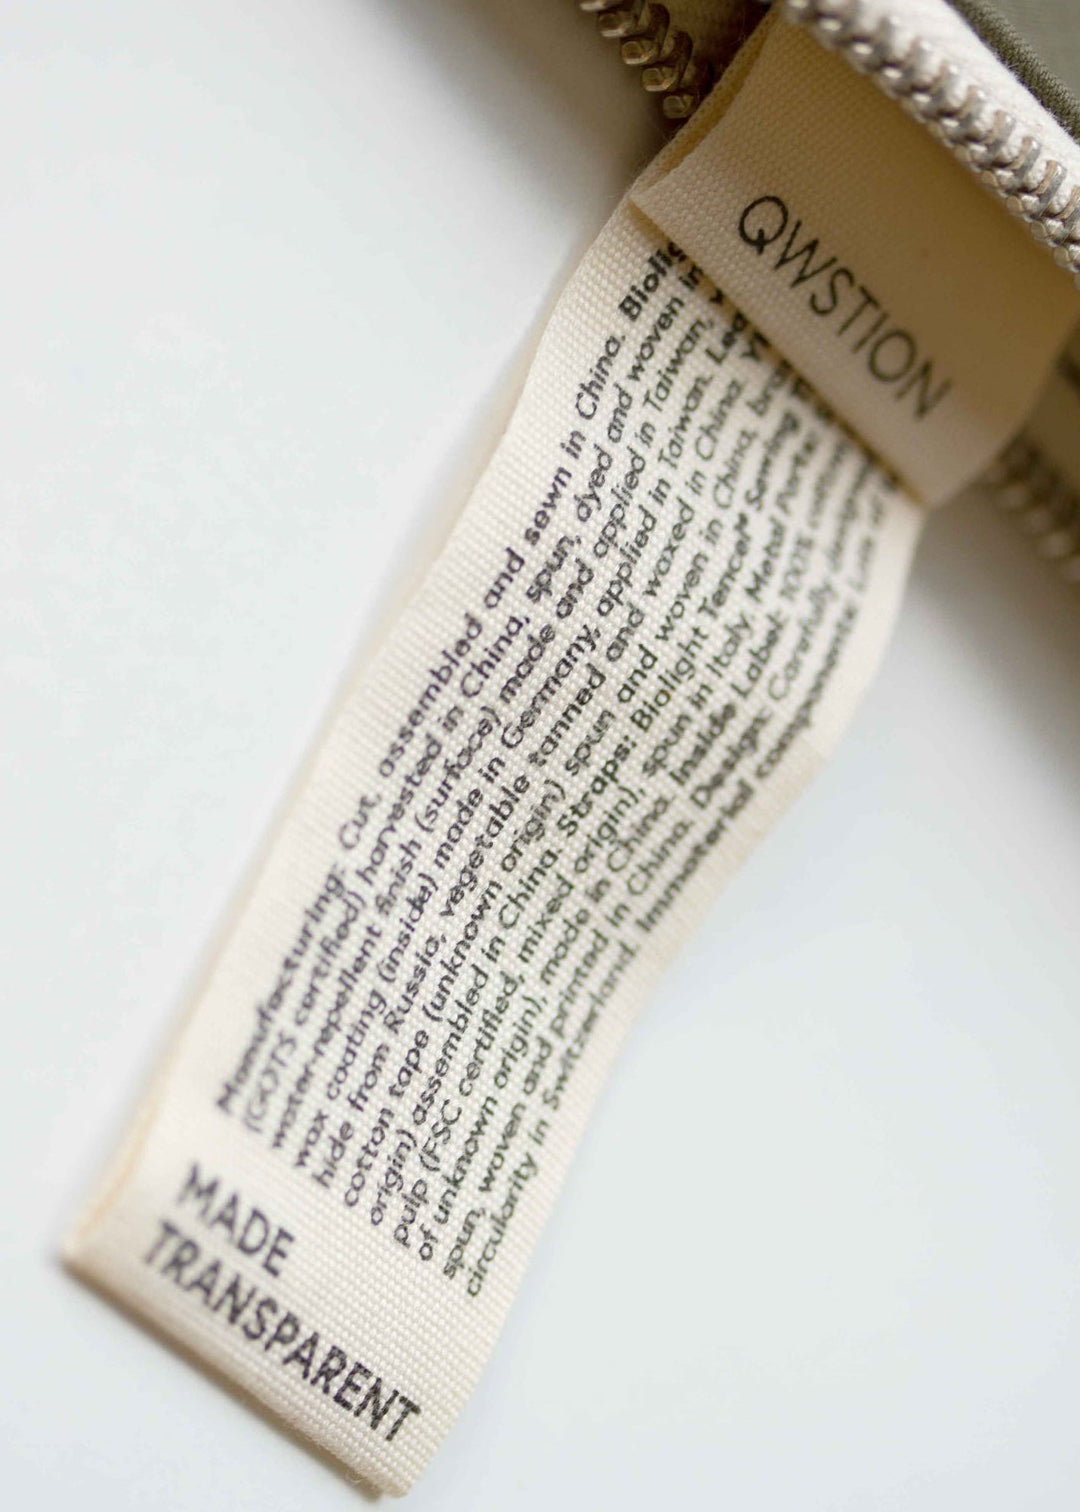 QWSTION
Manufacturing: Cut, assembled and sewn in China.
(GOTS certified) harvested in China, spun, dyed and woven in
water-repellent finish (surface) made and applied in Taiwan,
wax coating (inside) made in Germany, applied in Taiwan.
hide from Russia, vegetable tanned and waxed in China.
cotton tape (unknown origin) spun and woven in China,
origin) assembled in China. Straps: Biolight Tencel® Sewing
pulp (FSC certified, mixed origin), spun in Italy. Metal Parts:
of unknown origin), made in China. Inside Label: 100%
spun, woven and printed in China. Design: Carefully
circularity in Switzerland. Immaterial components:
MADE
TRANSPARENT